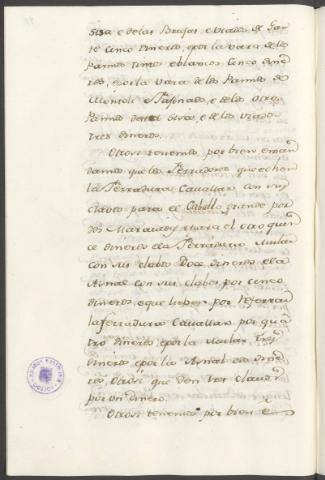 sisa e delas Brujas e viados de Gan
te cinco Dineros, e por la vara de los
Pannos tintos e blancos cinco dine
ros, e por la vara de los Pannos de
e de los otros
Pannos desta otra e de los viados
tres dineros.
Otrosi tenemos por bien e man
damos que los Ferradores que echen
la Ferradura Cavallar con sus
clavos para el Caballo grande por
dos Maravedis e para el otro quin
ce dineros e la Ferradura Mular
con sus clabos Doce dineros e la
Asnal con sus clabos por cinco
dineros, e que lieben por referrar
la ferradura Cavallar por qua
tro dineros e por la Mular tres
dineros e por la Asnal dos dine
ros, Otrosi que den tres clavos
por un dinero.
Otrosi tenemos por bien e